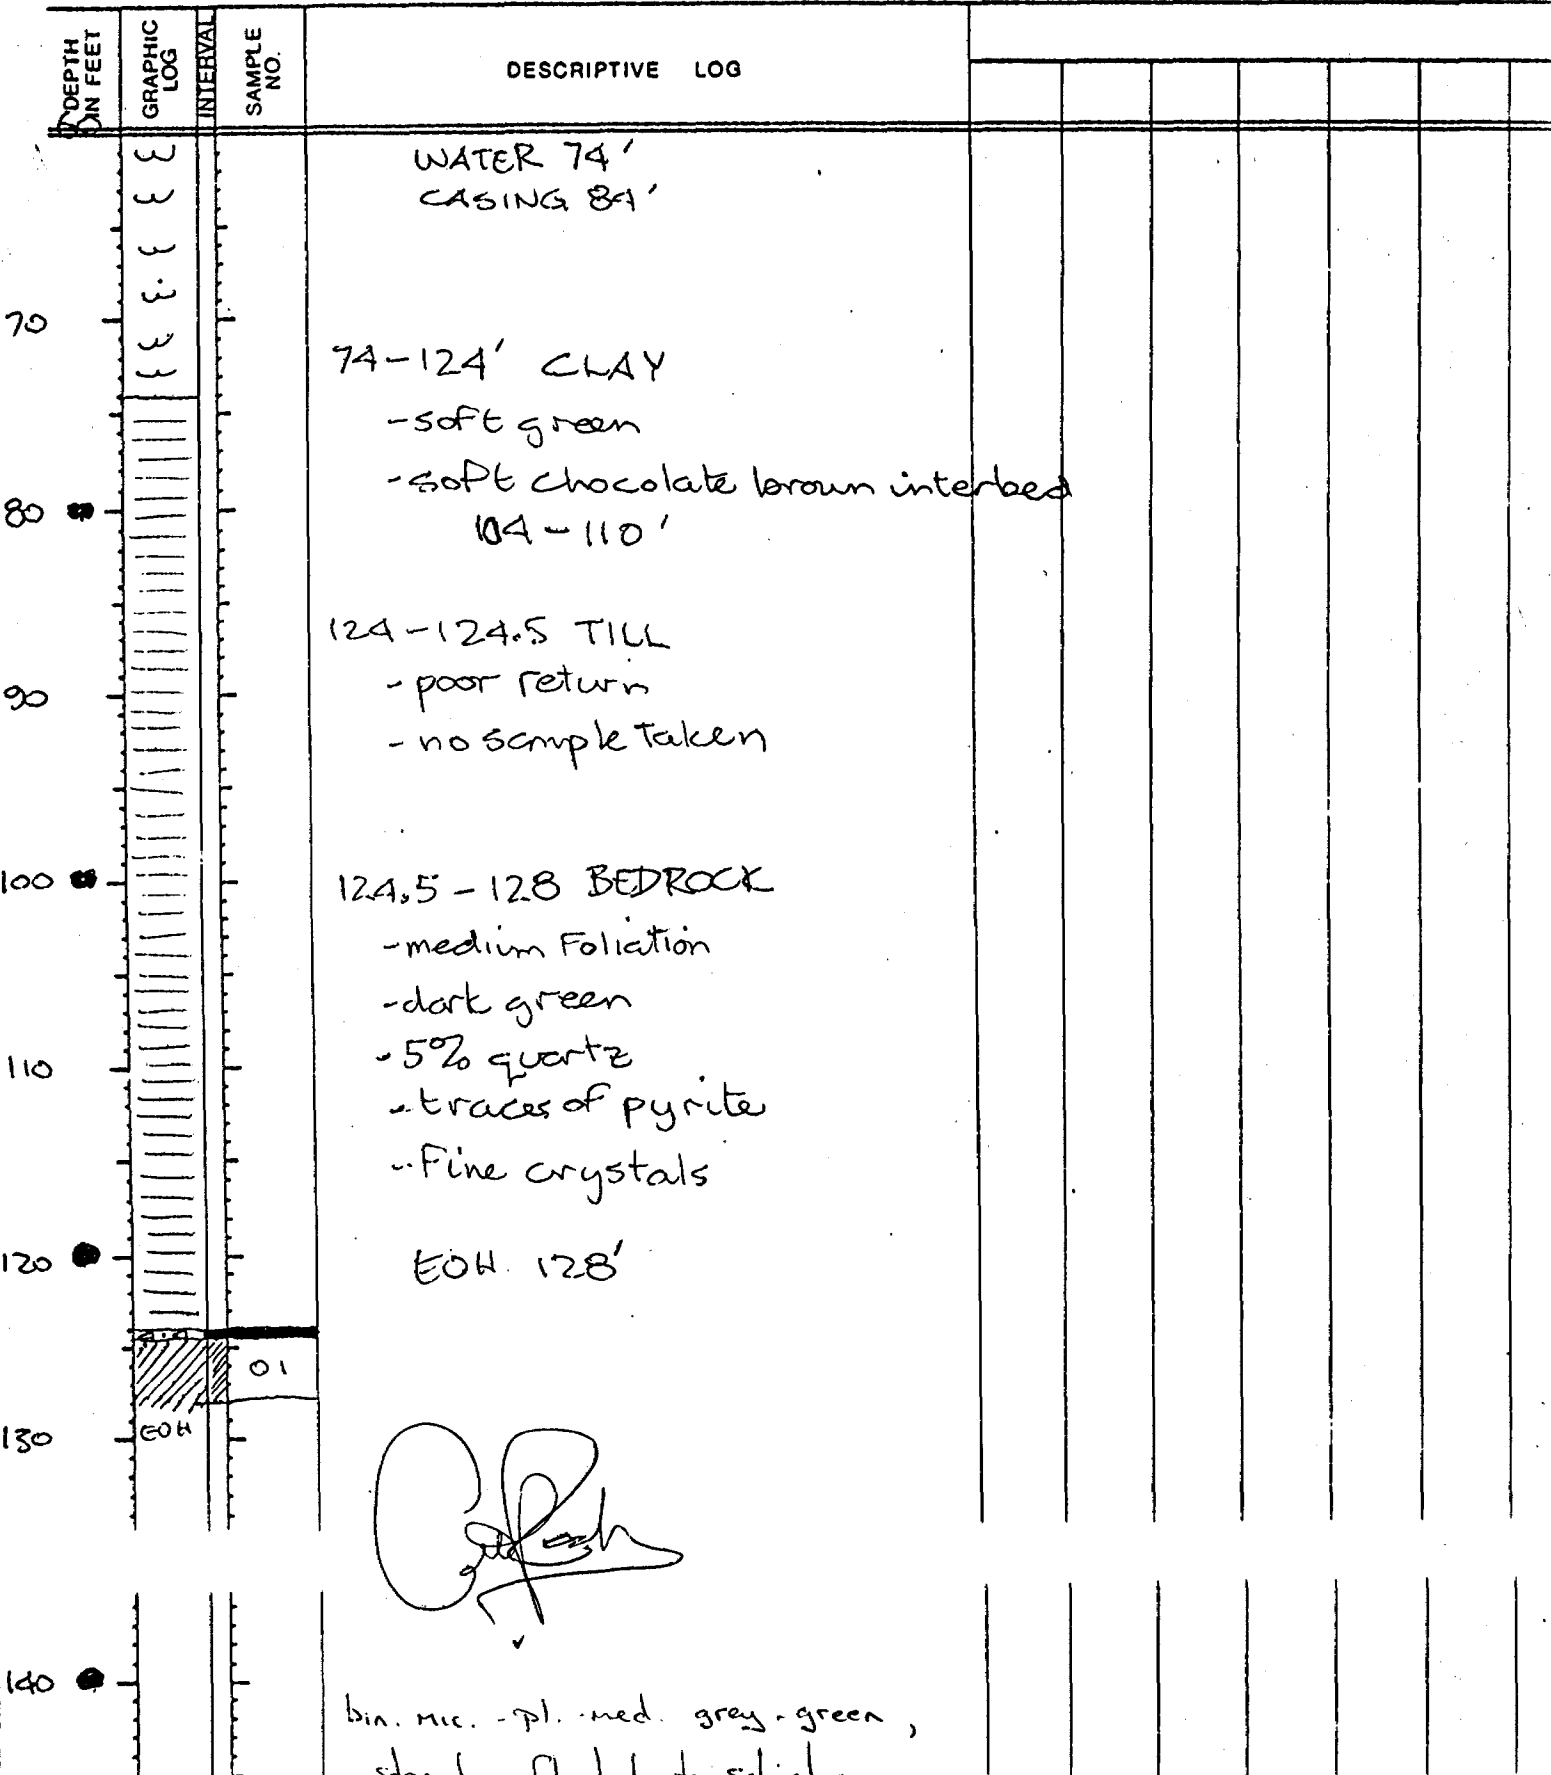 DEPTH IN FEET
GRAPHIC LOG
INTERVAL
SAMPLE NO.
DESCRIPTIVE LOG
WATER 74'
CASING 84'
70
74-124' CLAY
-soft green
-soft chocolate brown interbed
80
104-110'
124-124.5 TILL
-poor return
90
-no sample taken
100
124.5-128 BEDROCK
-medium Foliation
-dark green
-5% quartz
110
-traces of pyrite
-Fine crystals
120
EOH 128'
01
130
EOH
140
bin. mic. -pl. med. grey-green,